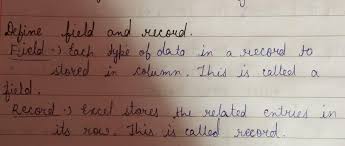 Define field and record.
Field → Each type of data in a record to
stored in column. This is called a
field.
Record → Excel stores the related entries in
its row. This is called record.